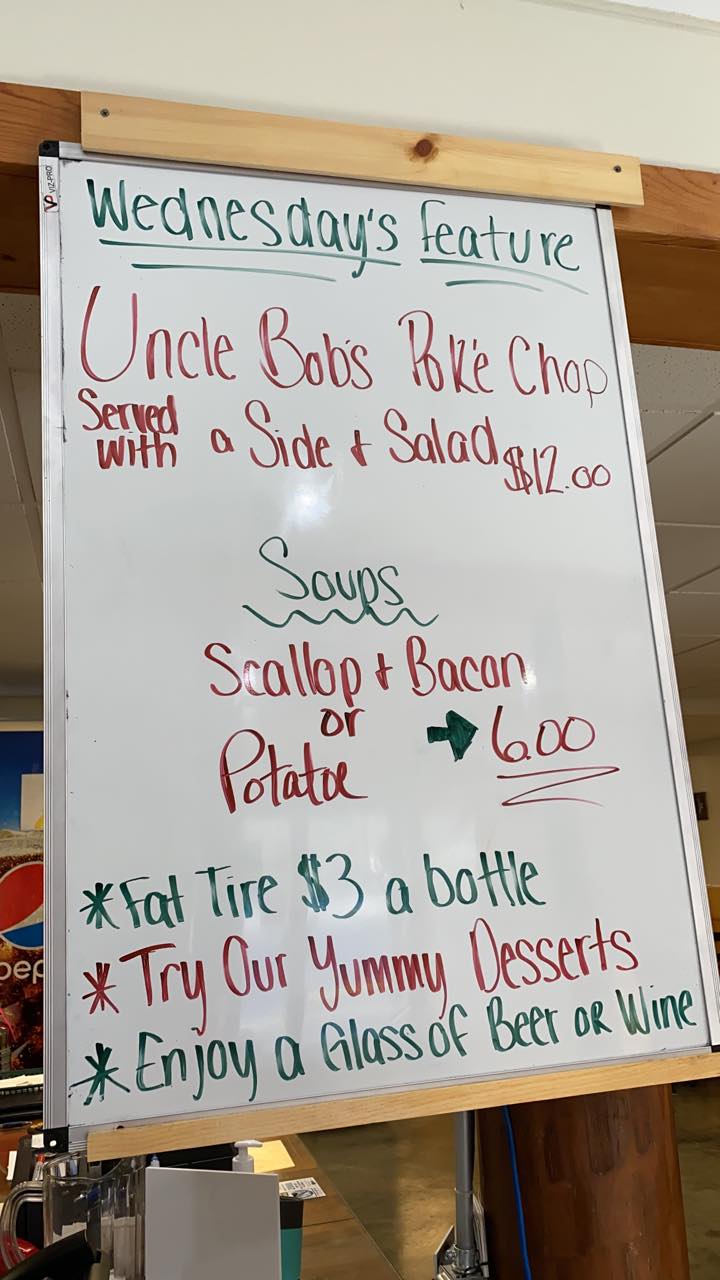 VIZ-PRO
Wednesday's Feature
Uncle Bob's Poke' Chop
Served with a Side + Salad $12.00
Soups
Scallop + Bacon
or
Potatoe → 6.00
*Fat Tire $3 a bottle
*Try Our Yummy Desserts
*Enjoy a Glass of Beer or Wine
pep